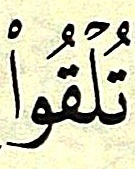 تُلْقُوا۟